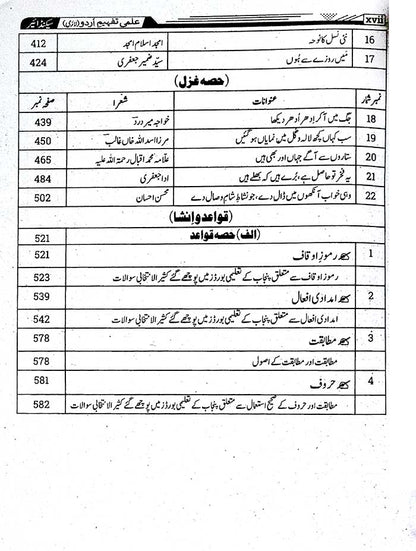 xvii علمی تفہیم اُردو (لازمی) سیکنڈائیر
16 نئی نسل کا نوحہ امجد اسلام امجد 412
17 میں روزے سے ہُوں سیّد ضمیر جعفری 424
(حصہ غزل)
نمبر شمار عنوانات شعرا صفحہ نمبر
18 جگ میں آ کر اِدھر اُدھر دیکھا خواجہ میر درد 439
19 سب کہاں کچھ لالہ و گل میں نمایاں ہو گئیں مرزا اسد اللہ خاں غالب 450
20 ستاروں سے آگے جہاں اور بھی ہیں علامہ محمد اقبال رحمۃ اللہ علیہ 465
21 یہ فخر تو حاصل ہے، بُرے ہیں کہ بھلے ہیں ادا جعفری 484
22 وہی خواب آنکھوں میں ڈال دے، جو نشاطِ شام وصال دے محسن احسان 502
(قواعد و اِنشا)
(الف) حصہ قواعد 521
1 رموزِ اوقاف 521
رموزِ اوقاف سے متعلق پنجاب کے تعلیمی بورڈز میں پوچھے گئے کثیر الانتخابی سوالات 523
2 امدادی افعال 539
امدادی افعال سے متعلق پنجاب کے تعلیمی بورڈز میں پوچھے گئے کثیر الانتخابی سوالات 542
3 مطابقت 578
مطابقت اور مطابقت کے اصول 578
4 حروف 581
مطابقت اور حروف کے صحیح استعمال سے متعلق پنجاب کے تعلیمی بورڈز میں پوچھے گئے کثیر الانتخابی سوالات 582